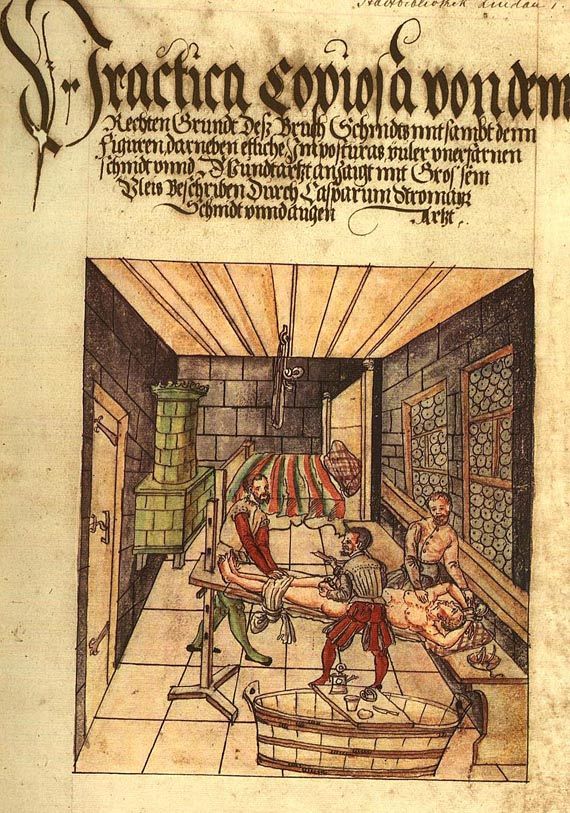 Stadtbibliothek Lindau i.
Practica Copiosa von dem
Rechten Grundt Deß Bruch Schnidts mitsambt denn
Figuren darneben etliche Imposturas viler vnerfarnen
schnidt vnnd Wundtartzt anzaigt mit Grossem
Vleis Beschriben Durch Casparum Stromayr
Schnidt vnnd augen Artzt.